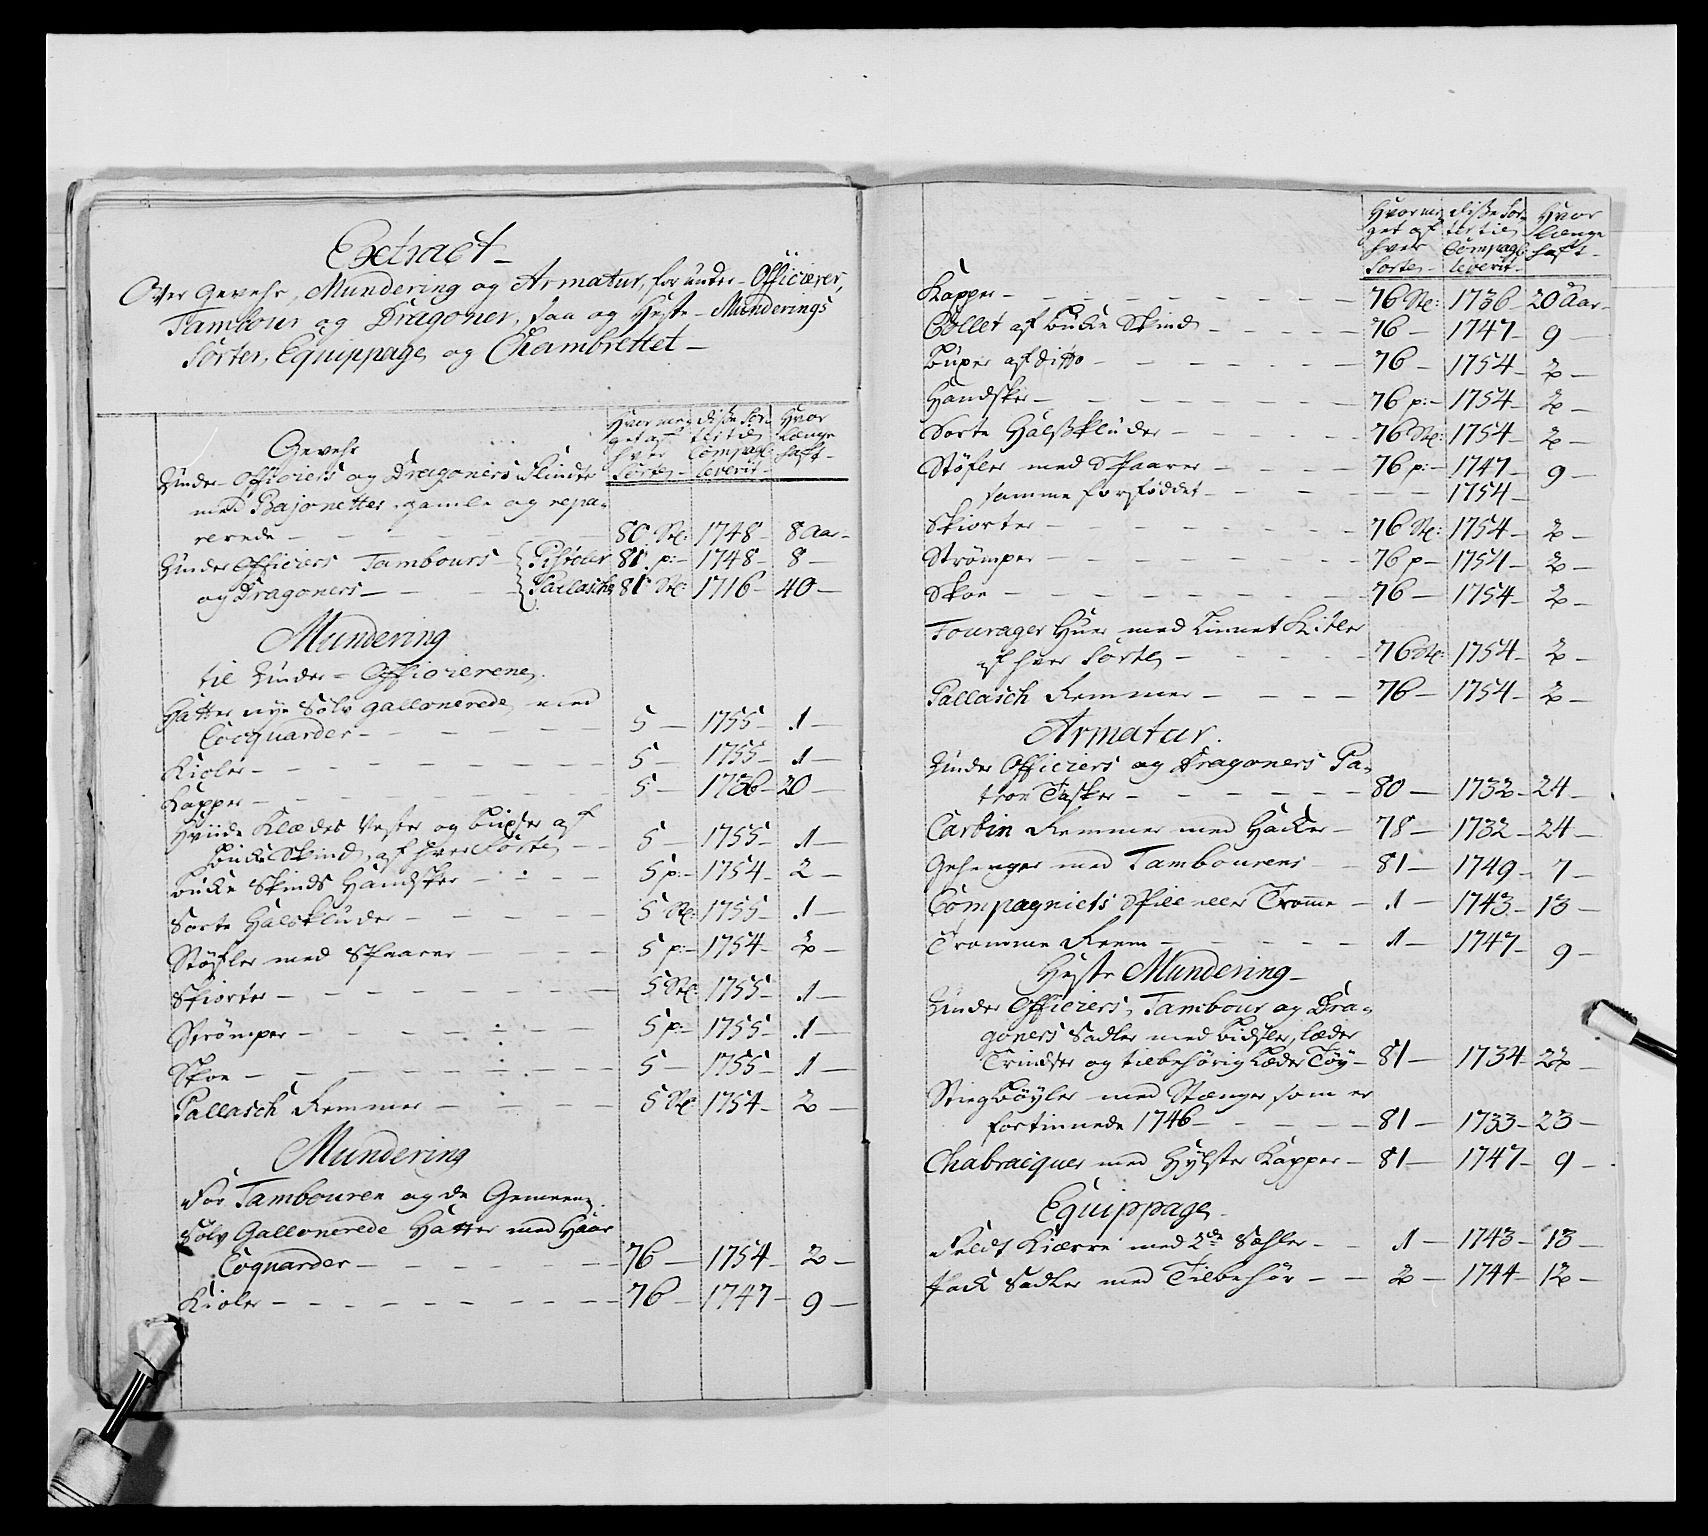 Extract
Over Gevehr, Mundering og Armatur, for under-Officierer,
Tambour og Dragoner, saa og Heste-Munderings
Sorter, Equippage og Chambrettet
Hvor me- get af hver Sorte
disse Sor- ter til Compagt: leverit
Hvor længe haft
Gevehr
Under-Officiers og Dragoners Flinter
med Bajonetter, gamle og repa-
rerede 80 St: 1748 8 Aar
Under Officiers Tambours Pistoler 81 p: 1748 8
og Dragoners Pallascher 81 St: 1716 40
Mundering
til Under-Officierene
Hatter nye Sølv gallonerede, med
Cocquarder 5 1755 1
Kioler 5 1755 1
Kapper 5 1736 20
Hviide Klædes Vester og buxer af
bukke Skind, af hver Sorte 5 1755 1
bukke Skinds Handsker 5 p: 1754 2
Sorte Halskluder 5 St: 1755 1
Støfler med Spaarer 5 p: 1754 2
Skiorter 5 St: 1755 1
Strømper 5 p: 1755 1
Skoe 5 1755 1
Pallasch Remmer 5 St: 1754 2
Mundering
for Tambouren og de Gemeene
Sølv Gallonerede Hatter med Haar
Coquarder 76 1754 2
Kioler 76 1747 9
Hvor me- get af hver Sorte
disse Sor- ter til Compagt: leverit
Hvor længe haft
Kapper 76 St: 1736 20 Aar
Collet af bukke Skind 76 1747 9
buxer af ditto 76 1754 2
Handsker 76 p: 1754 2
Sorte Halsklude 76 St: 1754 2
Støfler med Spaarer 76 p: 1747 9
samme forføddet 1754
Skiorter 76 St: 1754 2
Strømper 76 p 1754 2
Skoe 76 1754 2
Fourager Huer med Linnet Kitler
af hver Sorte 76 St: 1754 2
Pallasch Remmer 76 1754 2
Armatur.
Under Officiers og Dragoners Pa-
tron Tasker 80 1732 24
Carbin Remmer med Hacker 78 1732 24
Gehenger med Tambourens 81 1749 7
Compagniets Spill eller Tromme 1 1743 13
Tromme Reem 1 1747 9
Heste Mundering
Under Officiers, Tambour og Dra-
goners Sadler med bidsler, læder
Trindser og tilbehørig Læder Tøy 81 1734 22
Stiegbøyler med Stænger som er
fortinnede 1746 81 1733 23
Chabracquer med Hylster Kapper 81 1747 9
Equippage
Feldt Kiærre med 2de Sehler 1 1743 13
Pack Sadler med Tilbehør 2 1744 12